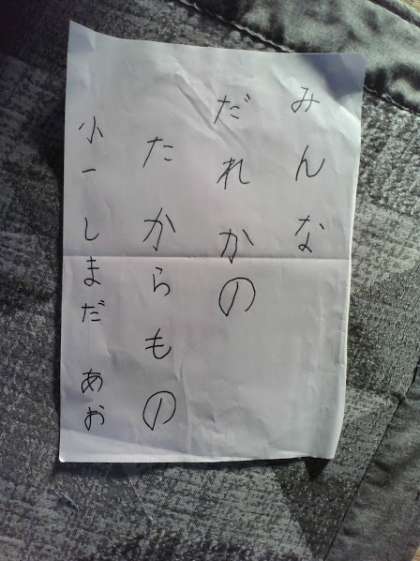 みんな
だれかの
たからもの
小一 しまだ あお